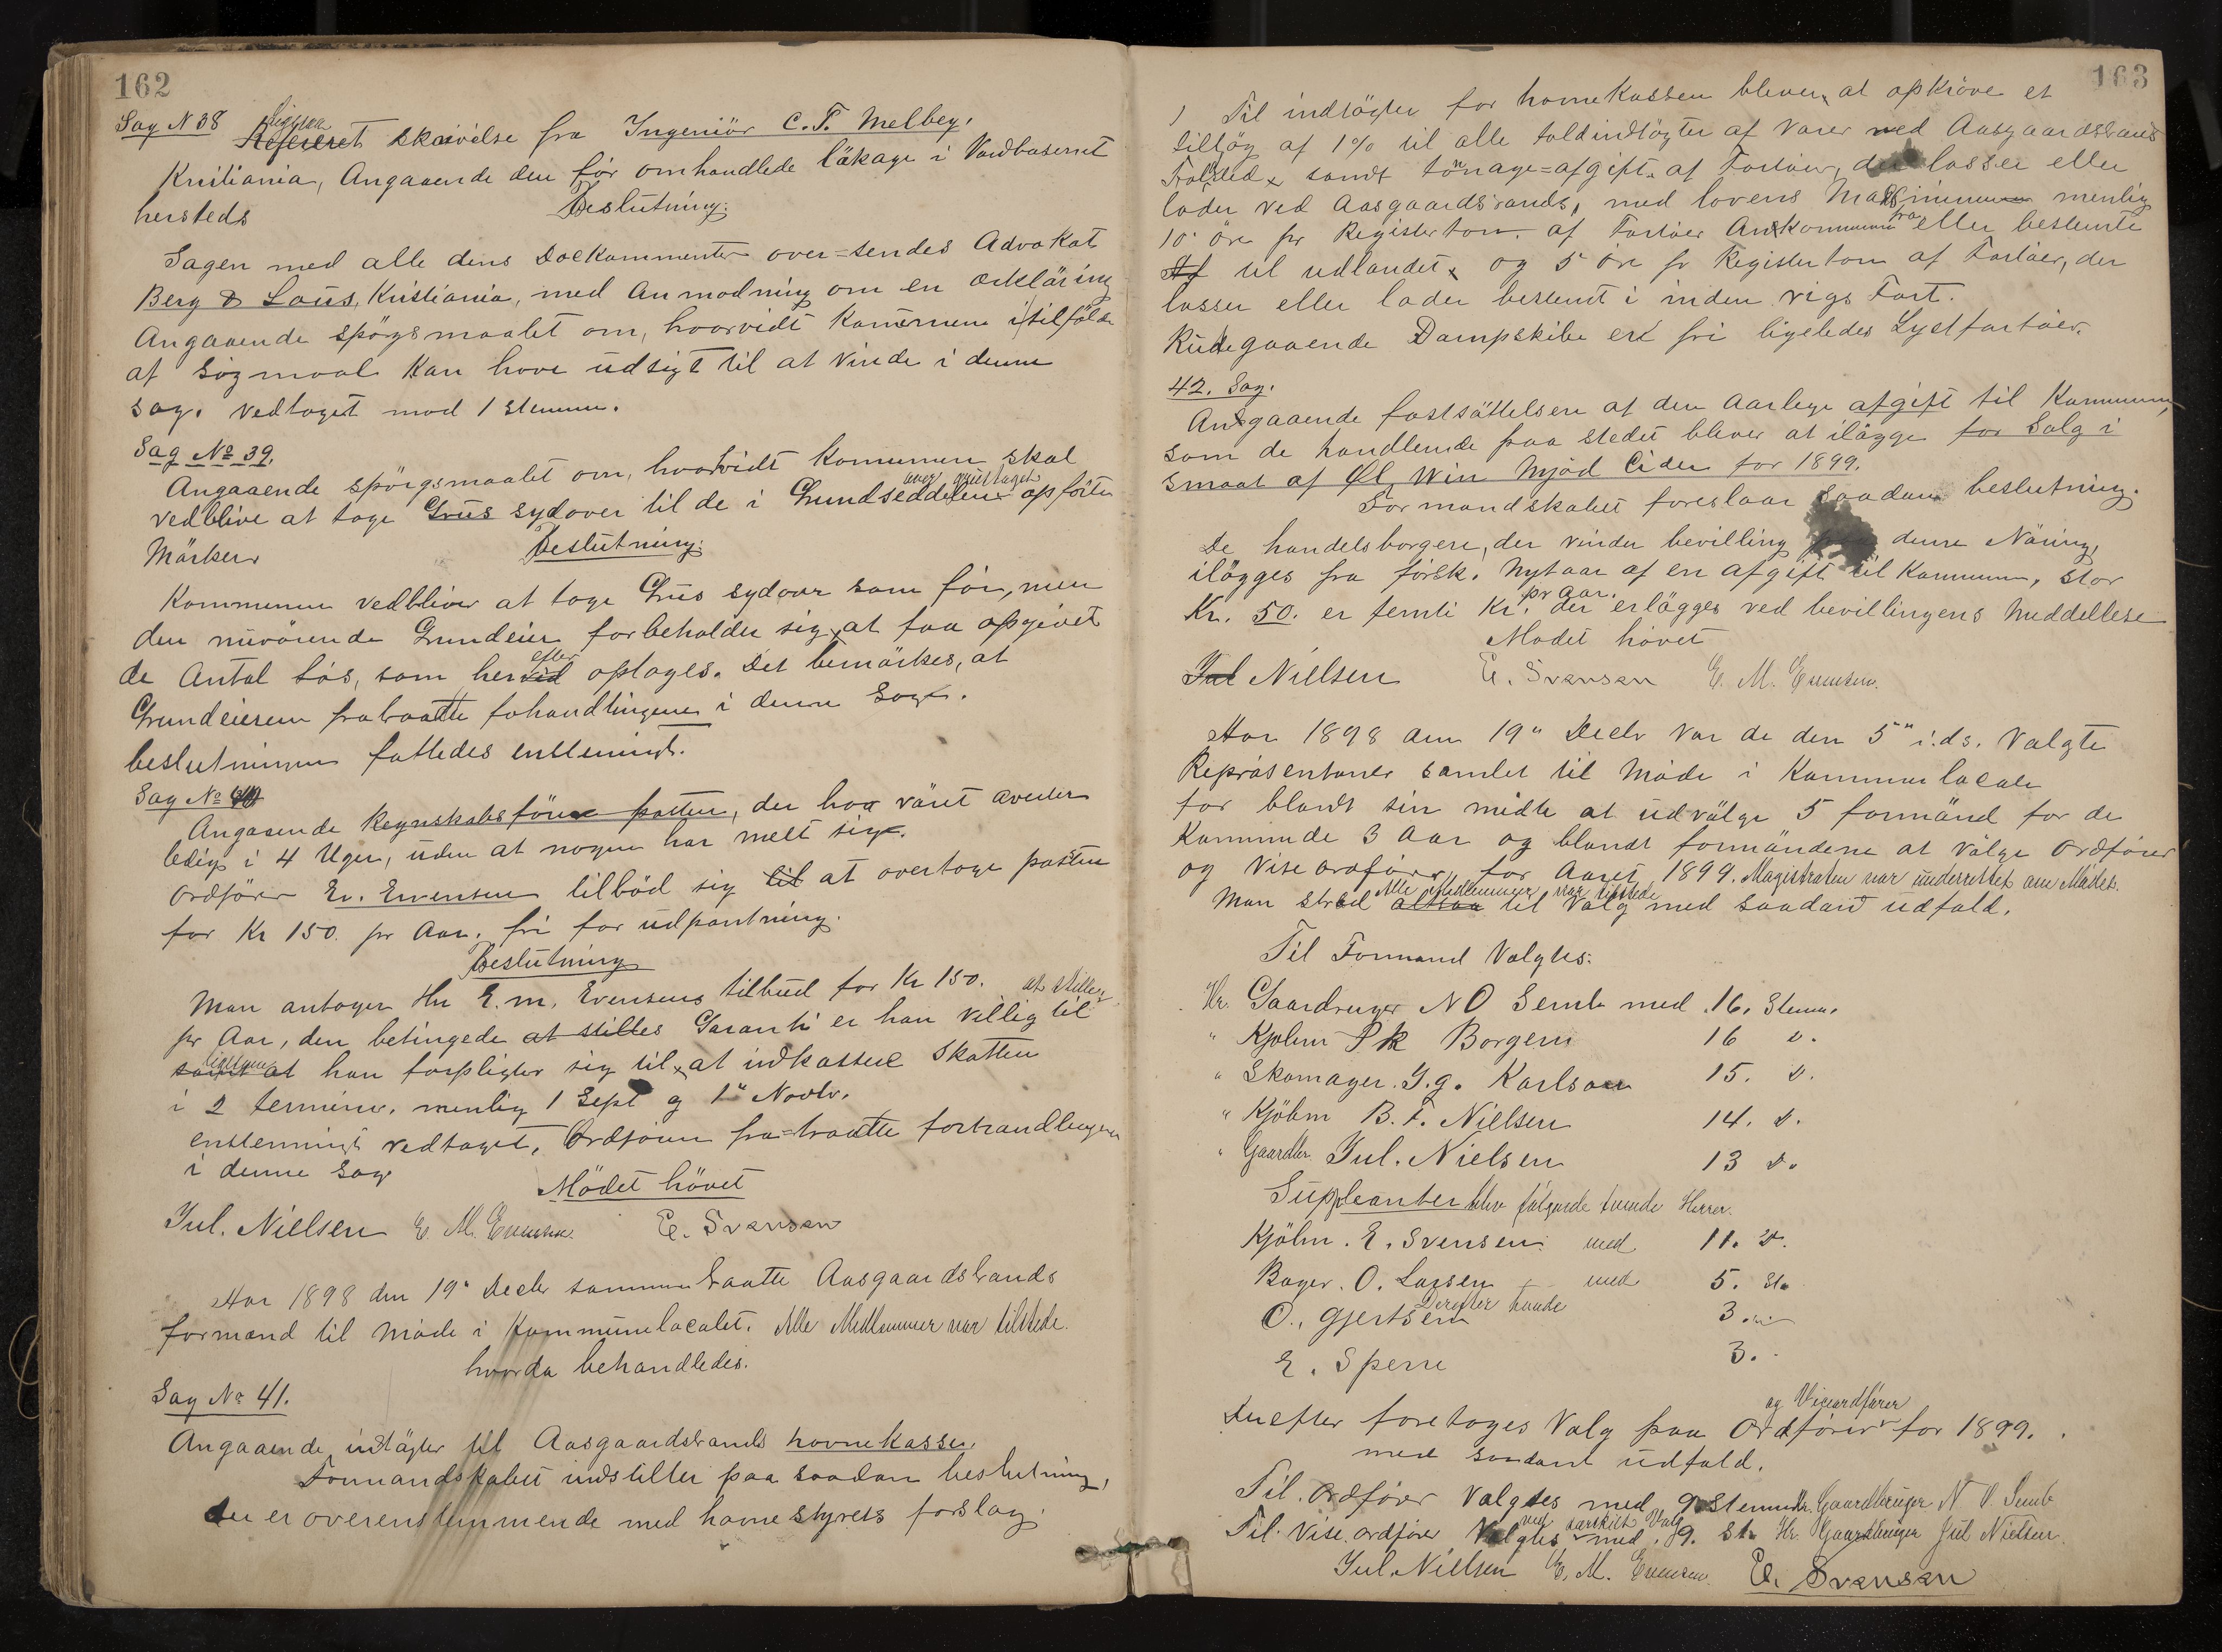 162
Sag N 38 Refereret skrivelse fra Ingeniör C. F. Melbey.
Kristiania, Angaaende den för omhandlede läkage i Vandbasernet
hersteds Beslutning:
Sagen med alle dens Dockummenter over=sendes Advokat
Berg & Lous, Kristiania, med Anmodning om en erkläring
Angaaende spörgsmaalet om, hvorvidt Kommunen i tilfälde
af Sögmaal Kan have udsigt til at vinde i denne
sag. vedtaget mod 1 stemme.
Sag No 39.
Angaaende spörgsmaalet om, hvorvidt Kommunen skal
vedblive at tage Grus sydover til de i Grundseddelen over grustaget opförte
Märker Beslutning:
Kommunen vedbliver at tage Grus sydover som för, men
den nuvärende Grundeier forbeholder sig at faa opgivet
de Antal läs, som her efter optages. Det bemärkes, at
Grundeieren fratraatte fohandlingene i denne Sag.
beslutningen fattedes enstemigt.
Sag No 40
Angaaende Regnskabsförer posten, der har väret averter
ledig i 4 Uger, uden at nogen har melt sig.
Ordförer Ev. Evensen tilböd sig til at overtage posten
for Kr 150. pr Aar. fri for udpantning.
Beslutning
Man antager Hr E. m. Evensens tilbud for Kr 150. at stille
pr Aar, den betingede at stilles Garanti er han villig til
ligesom at han forpligter sig til at indkassere Skatten
i 2 terminer. nemlig 1 Sept og 1" Novbr.
enstemmigt vedtaget, Ordföreren fra=traatte forhandlingen
i denne Sag
Mödet hävet
Jul. Nielsen E. M. Evensen. E. Svensen
Aar 1898 den 19" Decbr sammentraatte Aasgaardstrands
formænd til Möde i Kommunelocalet. Alle Medlemmer var tilstede.
hvorda behandledes.
Sag No 41.
Angaaende indtägter til Aasgaardstrands havnekasse.
Formandskabet indstiller paa saadan beslutning,
der er overenstemmende med havnestyrets forslag.
163
1 Til indtägter for havneKassen bliver at opkräve et
tilläg af 1% til alle toldindtägter af Varer ved Aasgaardstrands
Toldsted, samt tönnage=afgift af Fartöier, der losser eller
lader ved Aasgaardstrands, med lovens Maksimum nemlig
10 öre pr Registerton af Fartöier Ankommen fra eller bestemte
til udlandet, og 5 öre pr Registerton af Fartöier, der
losser eller lader bestemt i inden rigs Fart.
Rudegaaende Dampskibe er fri ligeledes Lystfartöier.
42. Sag.
Angaaende fastsättelsen af den Aarlige afgift til Kommunen,
som de handlende paa stedet bliver at ilägge for Salg i
smaat af Øl, Win Mjöd Cider for 1899.
Formandskabet foreslaar saadan beslutning.
De handelsborgere, der vinder bevilling denne Näring,
ilägges fra förstk. Nytaar af en afgift til Kommunen, stor
Kr. 50. er femti Kr. pr aar. der erlägges ved bevillingens Meddellelse
Mödet hävet
Jul Nielsen E. Svensen E. M. Evensen.
Aar 1898 den 19" Decbr var de den 5" i.ds. Valgte
Repräsentanter samlet til Möde i Kommunelocale
for blandt sin midte at udvälge 5 formänd for de
Kommende 3 Aar og blandt formändene at välge Ordförer
og Vise ordförer, for Aaret 1899. Magistraten var underrettet om Mödet.
Alle Medlemmer var tilstede
Man skred altsaa til Valg med saadant udfald.
Til Formænd Valgtes:
Hr. Gaardruger N O Semb med 16. Stem.
" Kjöbm P k Borgen 16 d.
" Skomager. J. g. Karlson 15. d.
" Kjöbm B. F. Nielsen 14. d.
" Gaardbr. Jul. Nielsen 13 d.
Suppleanter blev fölgende Herrer.
Kjöbm. E. Svensen med 11. d.
Bager. O. Larsen med 5. St.
Derefter
O. Gjertsen 3.
E. Sperre 3.
Derefter foretoges Valg paa Ordförer og Viceordförer for 1899.
med saadant udfald.
Til Ordförer Valgtes med 9 stemmer Hr. Gaardbruger N. O. Semb
Til Vise. ordförer Valgtes ved särskilt Valg med 9. St. Hr. Gaardbruger Jul Nielsen.
Jul. Nielsen E. M. Evensen. E. Svensen